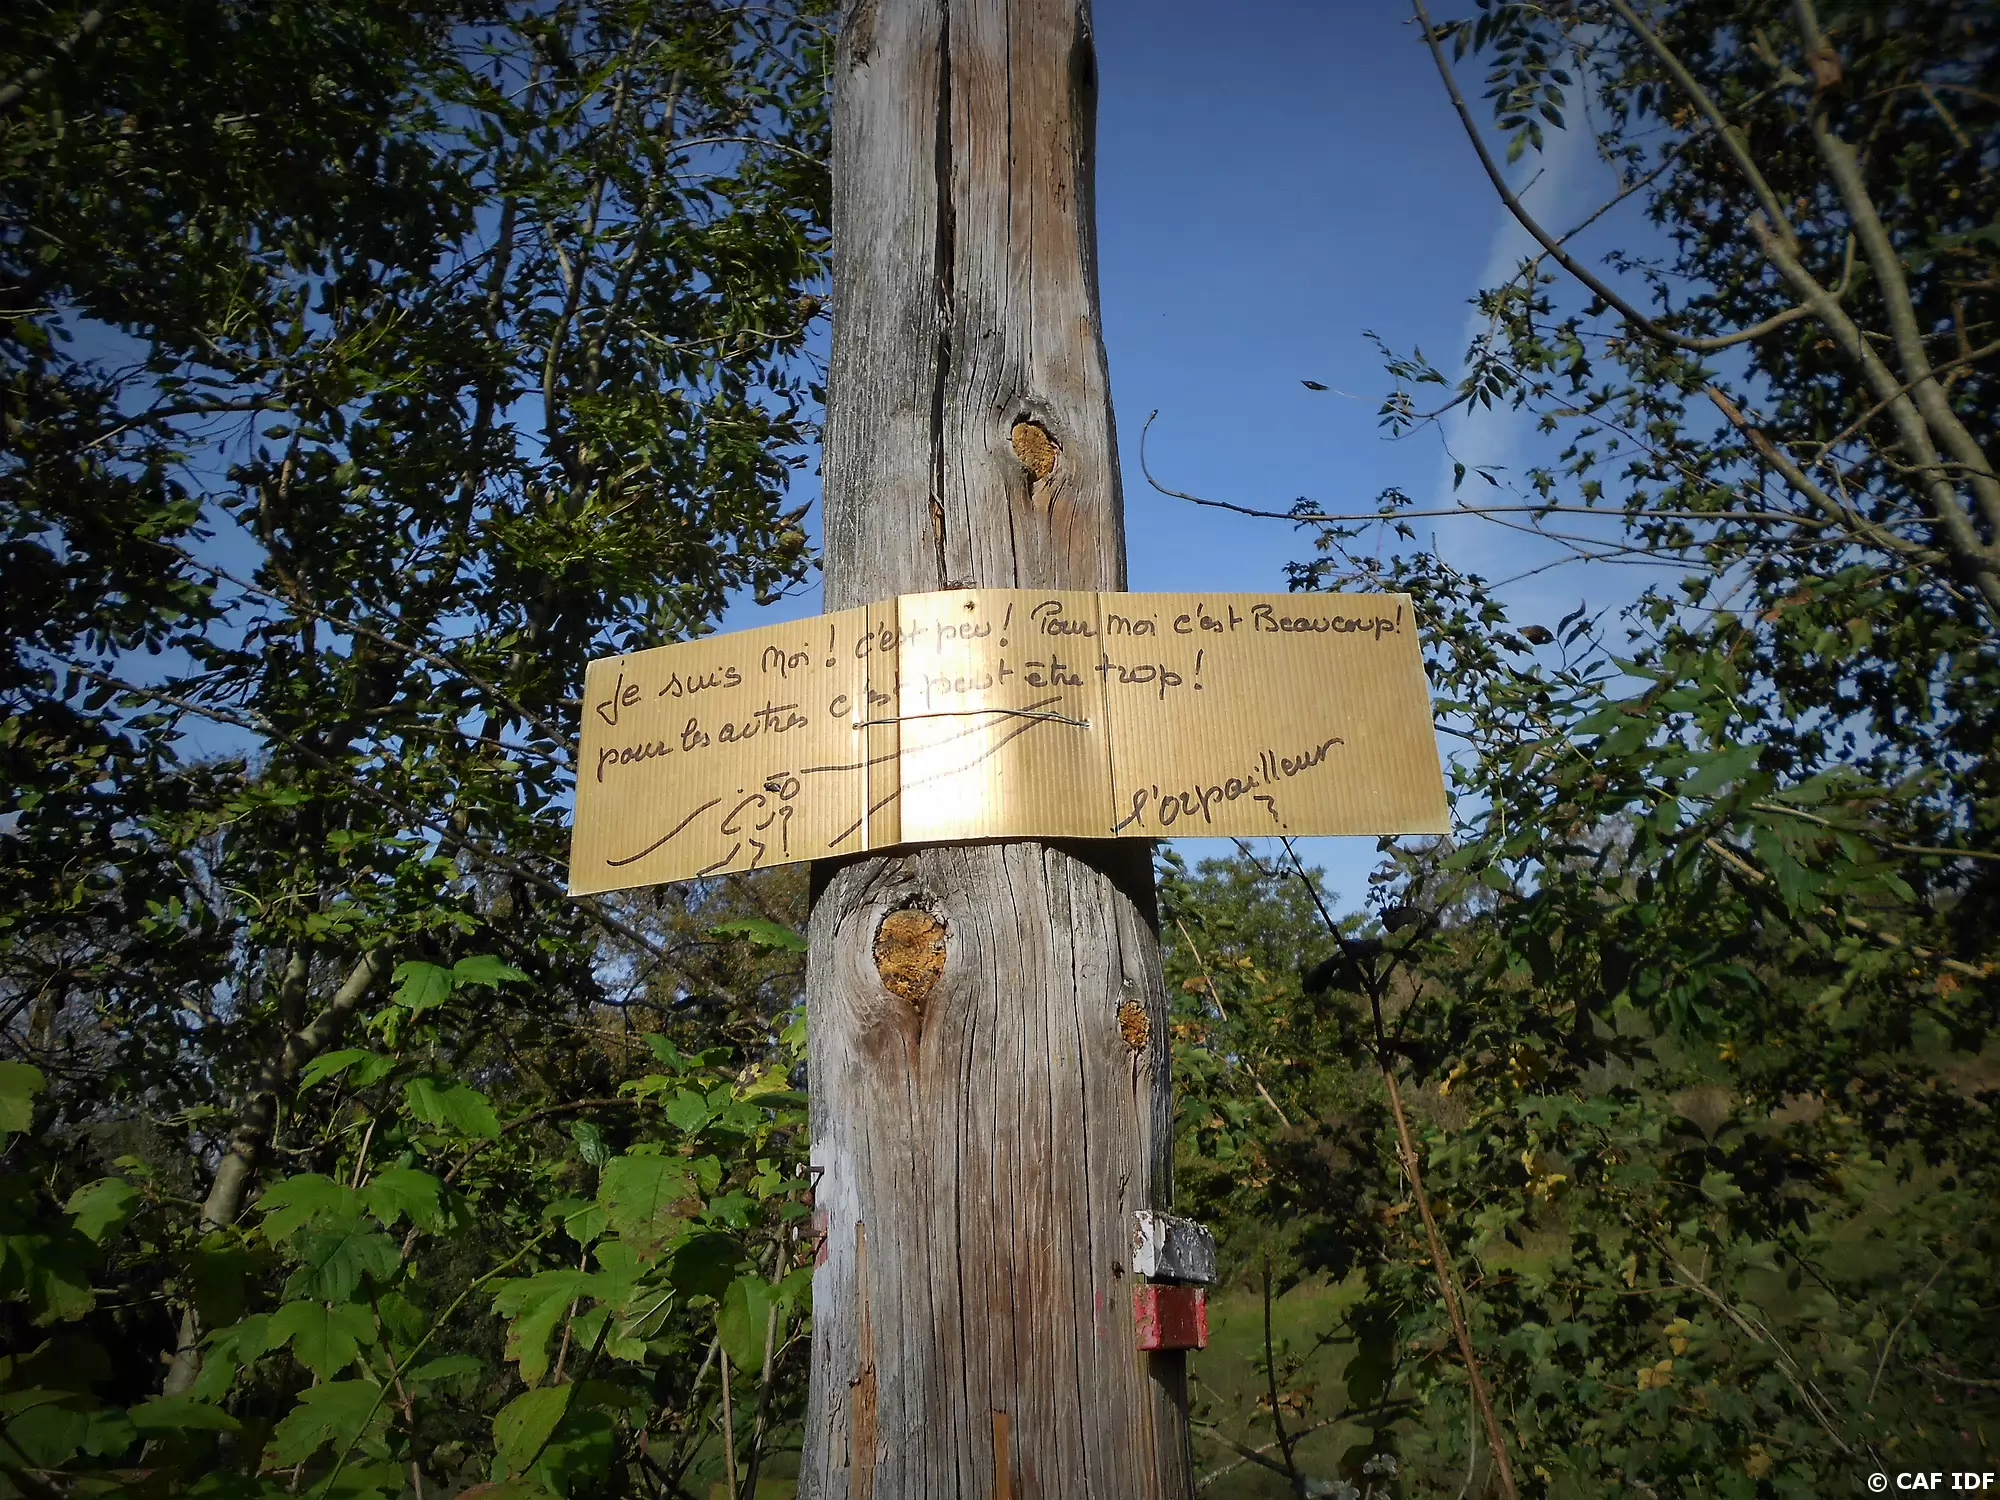 Je suis Moi ! c'est peu ! Pour moi c'est Beaucoup !
pour les autres c'est peut être trop !
l'orpailleur
© CAF IDF